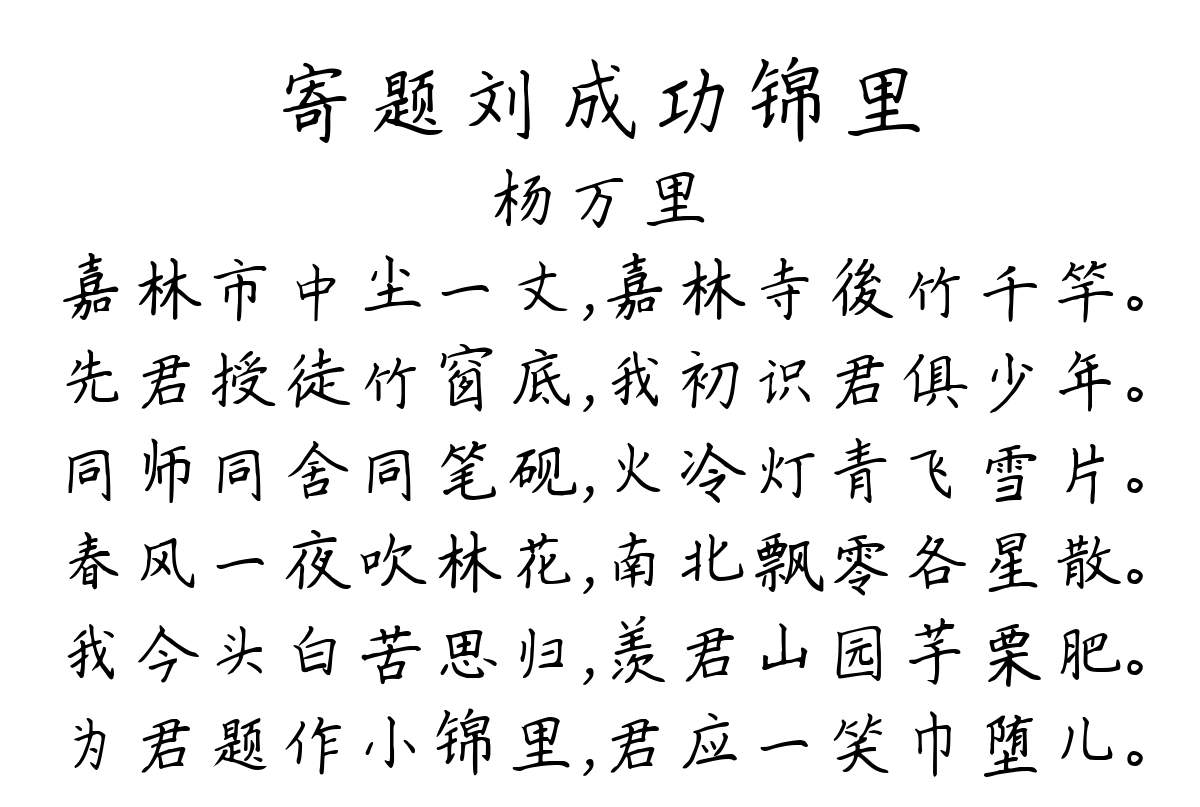 寄题刘成功锦里
杨万里
嘉林市中尘一丈,嘉林寺後竹千竿。
先君授徒竹窗底,我初识君俱少年。
同师同舍同笔砚,火冷灯青飞雪片。
春风一夜吹林花,南北飘零各星散。
我今头白苦思归,羡君山园芋栗肥。
为君题作小锦里,君应一笑巾堕儿。